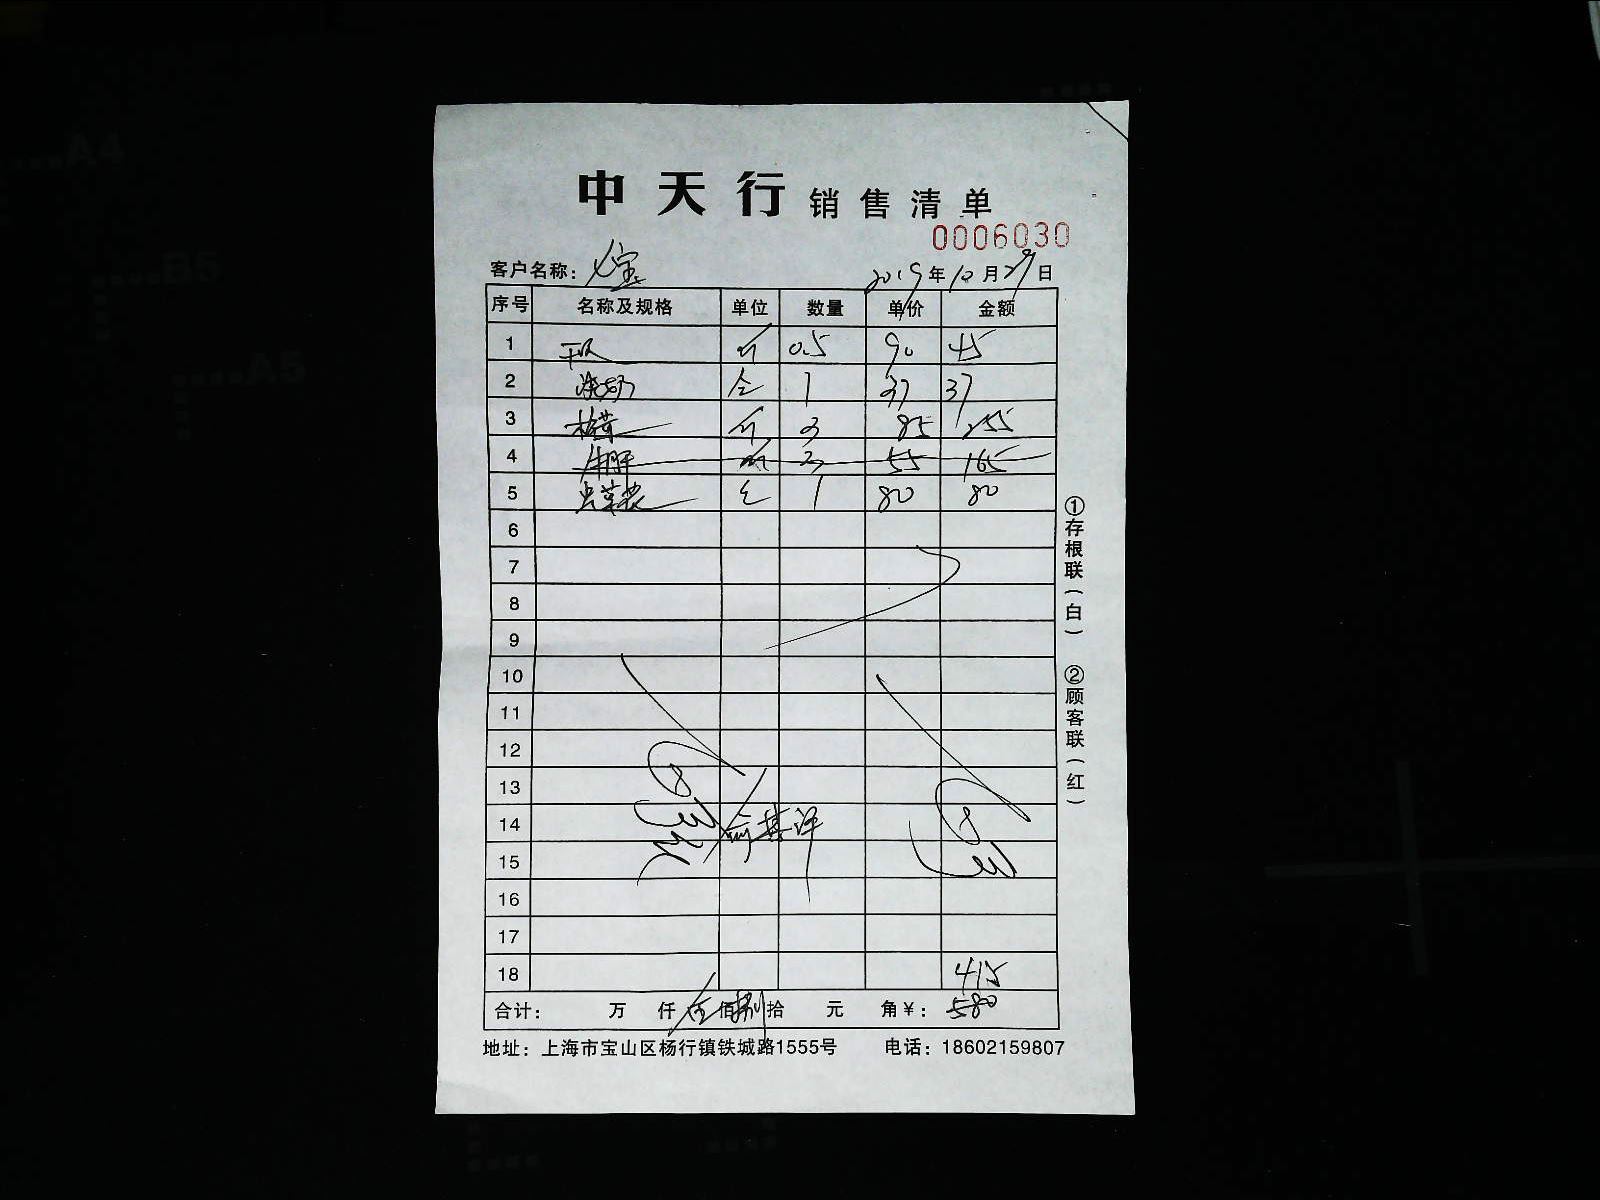 中天行 销售清单
0006030
客户名称： 七宝 2019年10月29日
序号 名称及规格 单位 数量 单价 金额
1 干贝 斤 0.5 90 45
2 1 37 37
3 斤 3 85 255
4 牛肝 斤 3 55 165
5 虫草花 1 80 80
6
7
8
9
10
11
12
13
14
15
16
17
18 415
合计： 万 仟 伍佰捌拾 元 角￥：580
地址：上海市宝山区杨行镇铁城路1555号 电话：18602159807
①存根联（白）
②顾客联（红）
A4
B5
A5